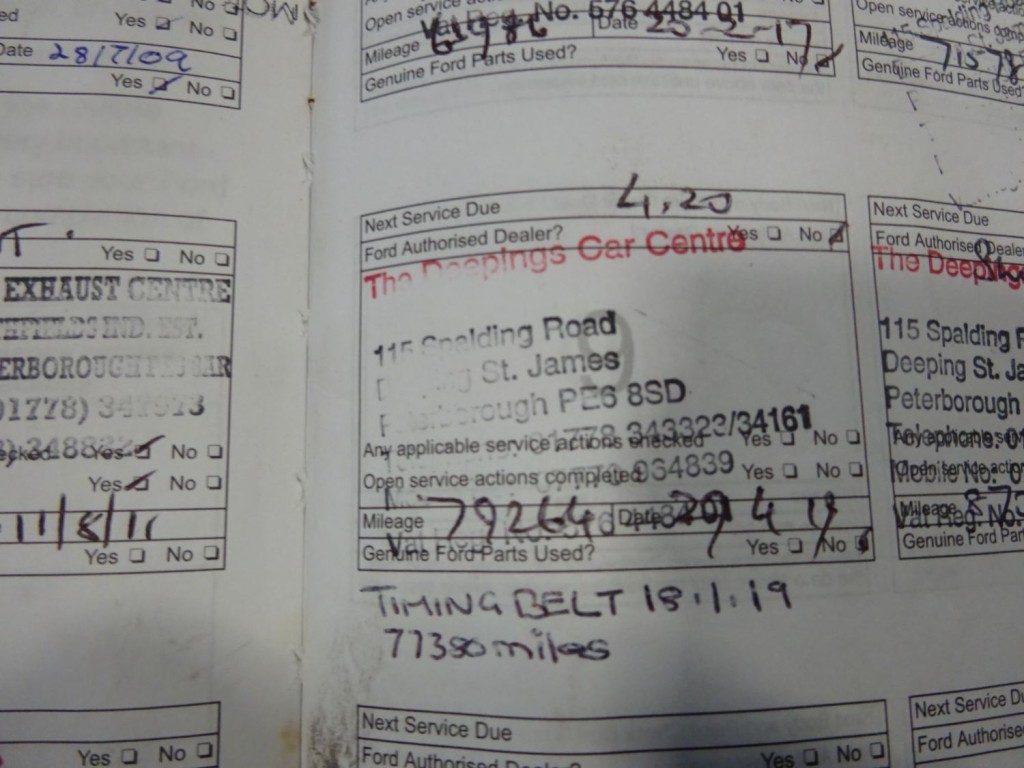 No
Yes No
Date 28/7/09
Yes No
Open service
Vat Reg. No. 676 4484 01
Mileage Date 23-2-17
Genuine Ford Parts Used? Yes No
Open service actions
Mileage 71578
Genuine Ford Parts Used
Yes No
EXHAUST CENTRE
IND. EST.
01778)
Yes No
Yes No
11/8/11
Yes No
Next Service Due 4.20
Ford Authorised Dealer? Yes No
The Deepings Car Centre
115 Spalding Road
St. James
Peterborough PE6 8SD
343323/34161
Any applicable service actions checked Yes No
Open service actions completed Yes No
Mileage 79264 Date 4 19
Genuine Ford Parts Used? Yes No
TIMING BELT 18.1.19
77380 miles
Next Service Due
Ford Authorised Dealer
The Deepings
115 Spalding R
Deeping St. Ja
Peterborough
Telephone: 01
Mobile No. 0
Mileage
Vat Reg. No.
Genuine Ford Par
Yes No
Next Service Due
Ford Authorised Dealer? Yes No
Next Service Du
Ford Authorise